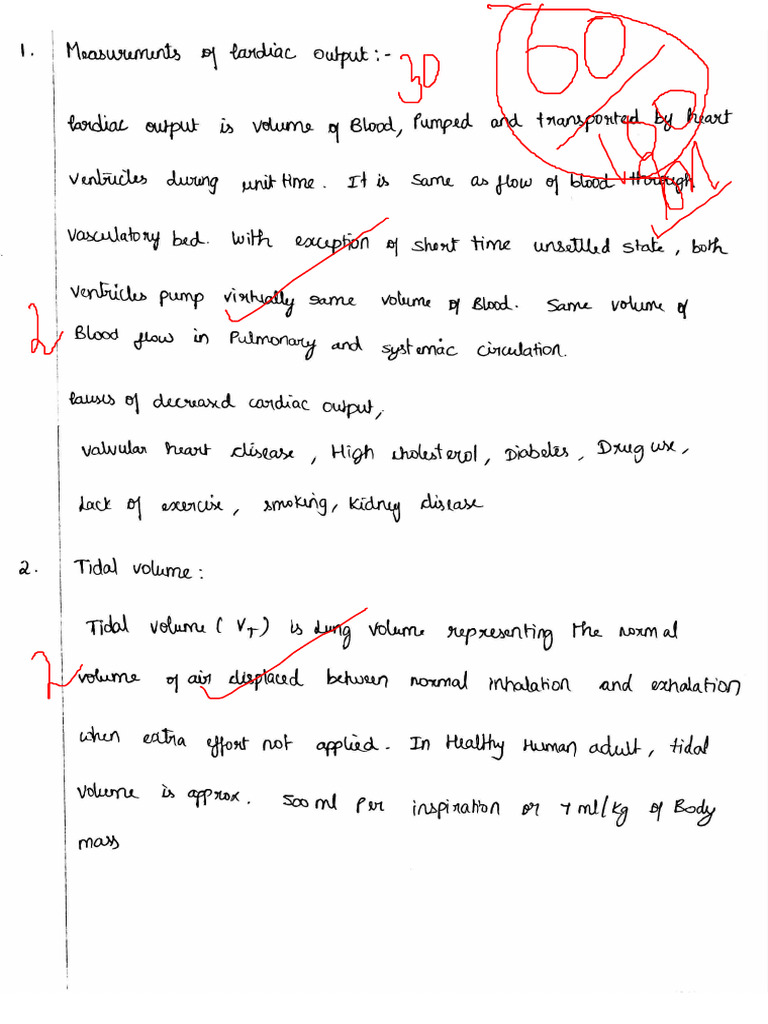 1. Measurements of Cardiac output:-
30
60
100
Cardiac output is volume of Blood, Pumped and transported by heart
ventricles during unit time. It is same as flow of blood through
vasculatory bed. With exception of short time unsettled state, both
ventricles pump virtually same volume of Blood. Same volume of
2
Blood flow in Pulmonary and systemic circulation.
Causes of decreased cardiac output,
valvular heart disease, High cholesterol, Diabetes, Drug use,
Lack of exercise, smoking, Kidney disease
2. Tidal volume:
Tidal volume (VT) is Lung volume representing the normal
2
volume of air displaced between normal inhalation and exhalation
when extra effort not applied. In Healthy Human adult, tidal
volume is approx. 500 ml Per inspiration or 7 ml/kg of Body
mass